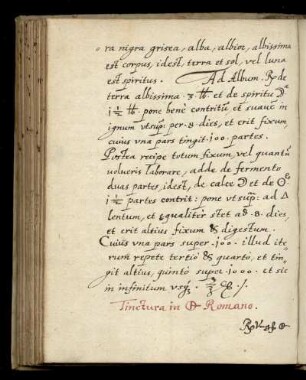 ra nigra grisea, alba, albior, albissima
est corpus, idest, terra et sol, vel luna
est spiritus. Ad Album. ℞ de
terra albissima ʒ ℔ et de spiritu ☽
i ½ ℔. pone bene contritū et suauē in
ignum vt supᵃ per .8. dies, et erit fixum
cuius vna pars tingit .100. partes.
Postea recipe totum fixum, vel quantū
volueris laborare, adde de fermento
duas partes, idest, de calce ☽ et de ☉
i ½ partes contrit: pone vt supᵃ: ad △
lentum, et equaliter stet ad .8. dies,
et erit altius fixum & digestum.
Cuius vna pars super .100. illud ite
rum repete tertiò & quartò, et tin,
git altius, quintò super .1000. et sic
in infinitum
Tinctura in Romano.